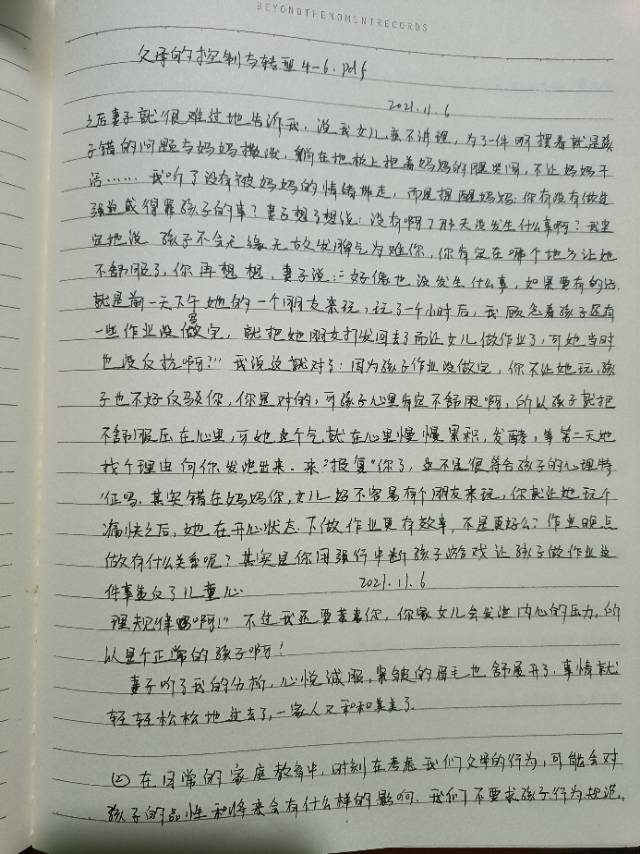 BEYONDTHEMOMENTRECORDS
父母的控制与转型4-6.pdf
2021.11.6
之后妻子就很难过地告诉我，说我女儿蛮不讲理，为了一件明摆着就是孩
子错的问题与妈妈撒泼，躺在地板上抱着妈妈的腿哭闹，不让妈妈干
活……我听了没有被妈妈的情绪带走，而是提醒妈妈：你有没有做过
强迫或得罪孩子的事？妻子想了想说：没有啊？那天没发生什么事啊？我坚
定地说 孩子不会无缘无故发脾气为难你，你肯定在哪个地方让她
不舒服了，你再想想，妻子说：好像也没发生什么事，如果要有的话
就是前一天下午她的一个朋友来玩，玩了一个小时后，我顾念着孩子还有
一些作业没做完，就把她朋友打发回去了而让女儿做作业了，可她当时
也没反抗啊？”我说这就对了：因为孩子作业没做完，你不让她玩，孩
子也不好反驳你，你是对的，可孩子心里肯定不舒服啊，所以孩子就把
不舒服压在心里，可她这个气就在心里慢慢累积，发酵，等第二天她
找个理由向你发泄出来，来“报复”你了，这不是很符合孩子的心理特
征吗，其实错在妈妈你，女儿好不容易有个朋友来玩，你就让她玩个
痛快之后，她在开心状态下做作业更有效率，不是更好么？作业晚点
做有什么关系呢？其实是你用强行中断孩子游戏让孩子做作业这
件事违反了儿童心
2021.11.6
理规律啊！”不过我还要恭喜你，你家女儿会发泄内心的压力，所
以是个正常的孩子啊！
妻子听了我的分析，心悦诚服，紧皱的眉毛也舒展开了，事情就
轻轻松松地过去了，一家人又和和美美了.
② 在日常的家庭教育中，时刻在考虑我们父母的行为，可能会对
孩子的品性和将来会有什么样的影响，我们不要求孩子行为规范，